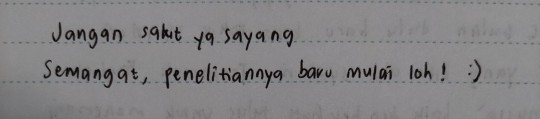 Jangan sakit ya sayang
Semangat, penelitiannya baru mulai loh! :)